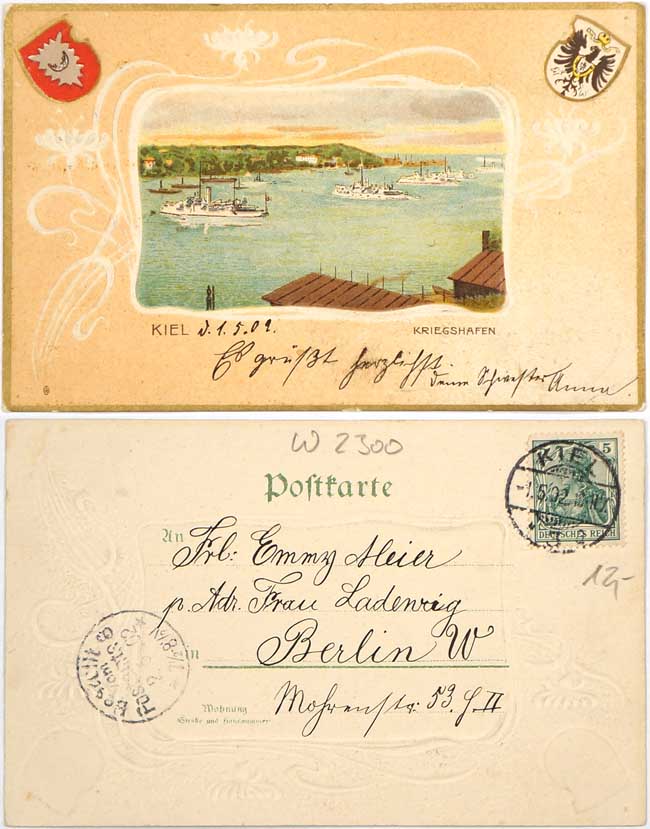 KIEL d. 1.5.02.
KRIEGSHAFEN
Es grüßt herzlichst
deine Schwester Anna
W 2300
Postkarte
5
DEUTSCHES REICH
KIEL
1.5.02
12,-
An
Frl. Emmy Meier
p. Adr. Frau Ladewig
in
Berlin W
Wohnung
Straße und Hausnummer
Mohrenstr. 53. H. II
Bestellt
vom
Postamte